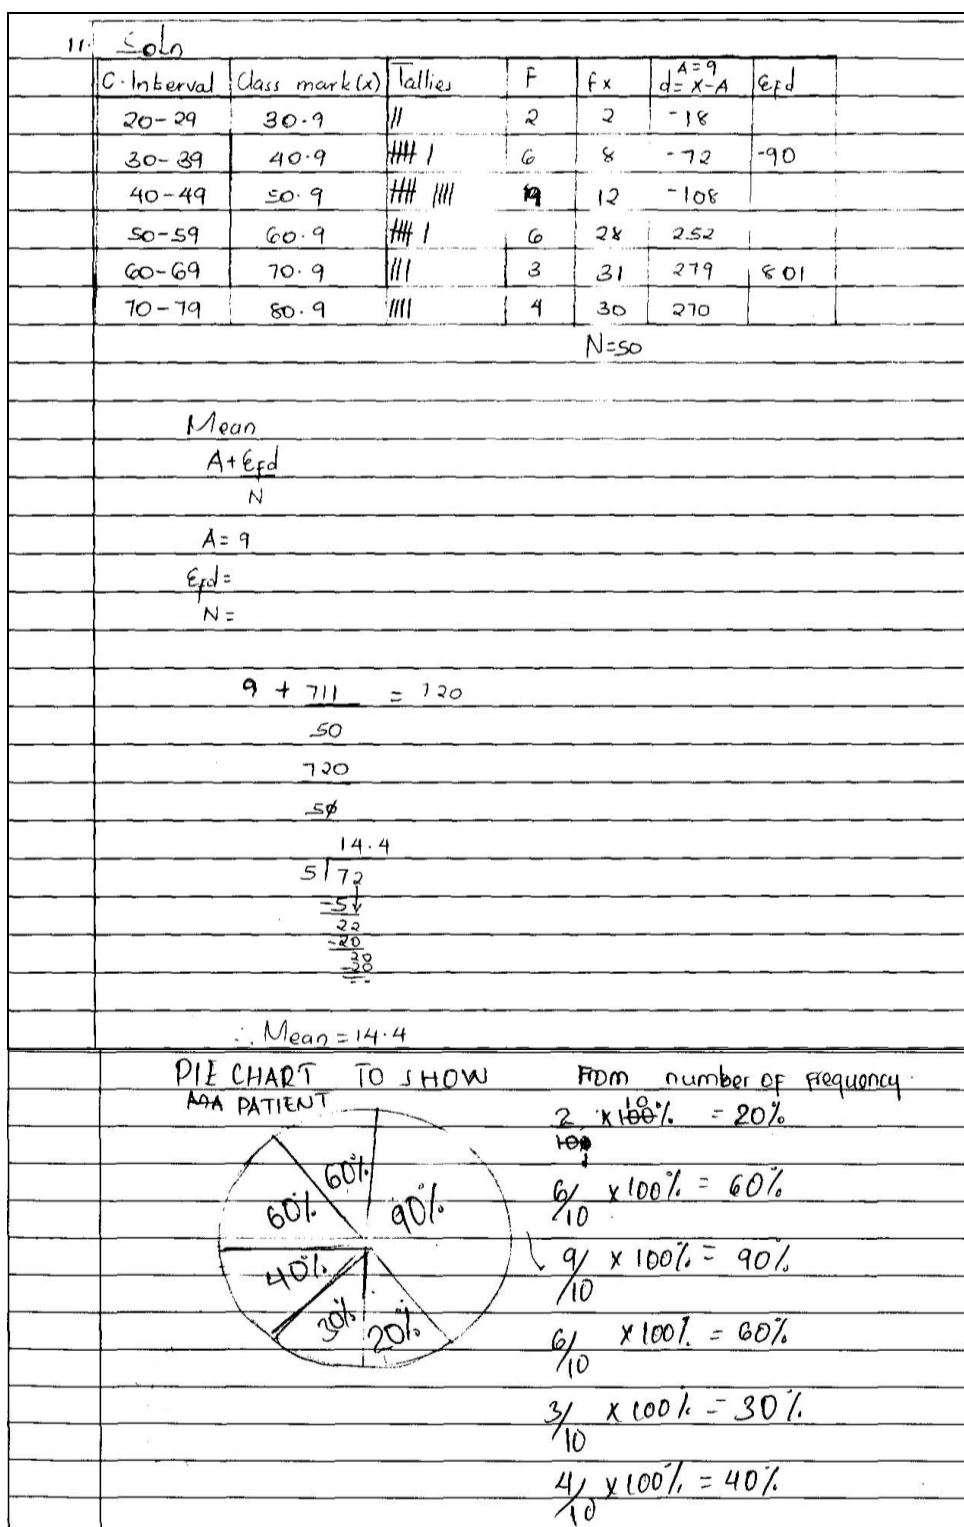 11. Soln
C. Interval Class mark (x) Tallies F Fx A = 9 d = x - A ƐFd
20-29 30.9 // 2 2 -18
30-39 40.9 //// / 6 8 -72 -90
40-49 50.9 //// //// 9 12 -108
50-59 60.9 //// / 6 28 252
60-69 70.9 /// 3 31 279 801
70-79 80.9 //// 4 30 270
N=50
Mean
A + ƐFd
N
A = 9
ƐFd =
N =
9 + 711 = 720
50
720
50
14.4
5 72
-5
22
-20
20
-20
--
∴ Mean = 14.4
PIE CHART TO SHOW
PATIENT
60%
60%
90%
40%
30%
20%
From number of Frequency.
2/100 x 100% 10 = 20%
1
6/10 x 100% = 60%
9/10 x 100% = 90%
6/10 x 100% = 60%
3/10 x 100% = 30%
4/10 x 100% = 40%